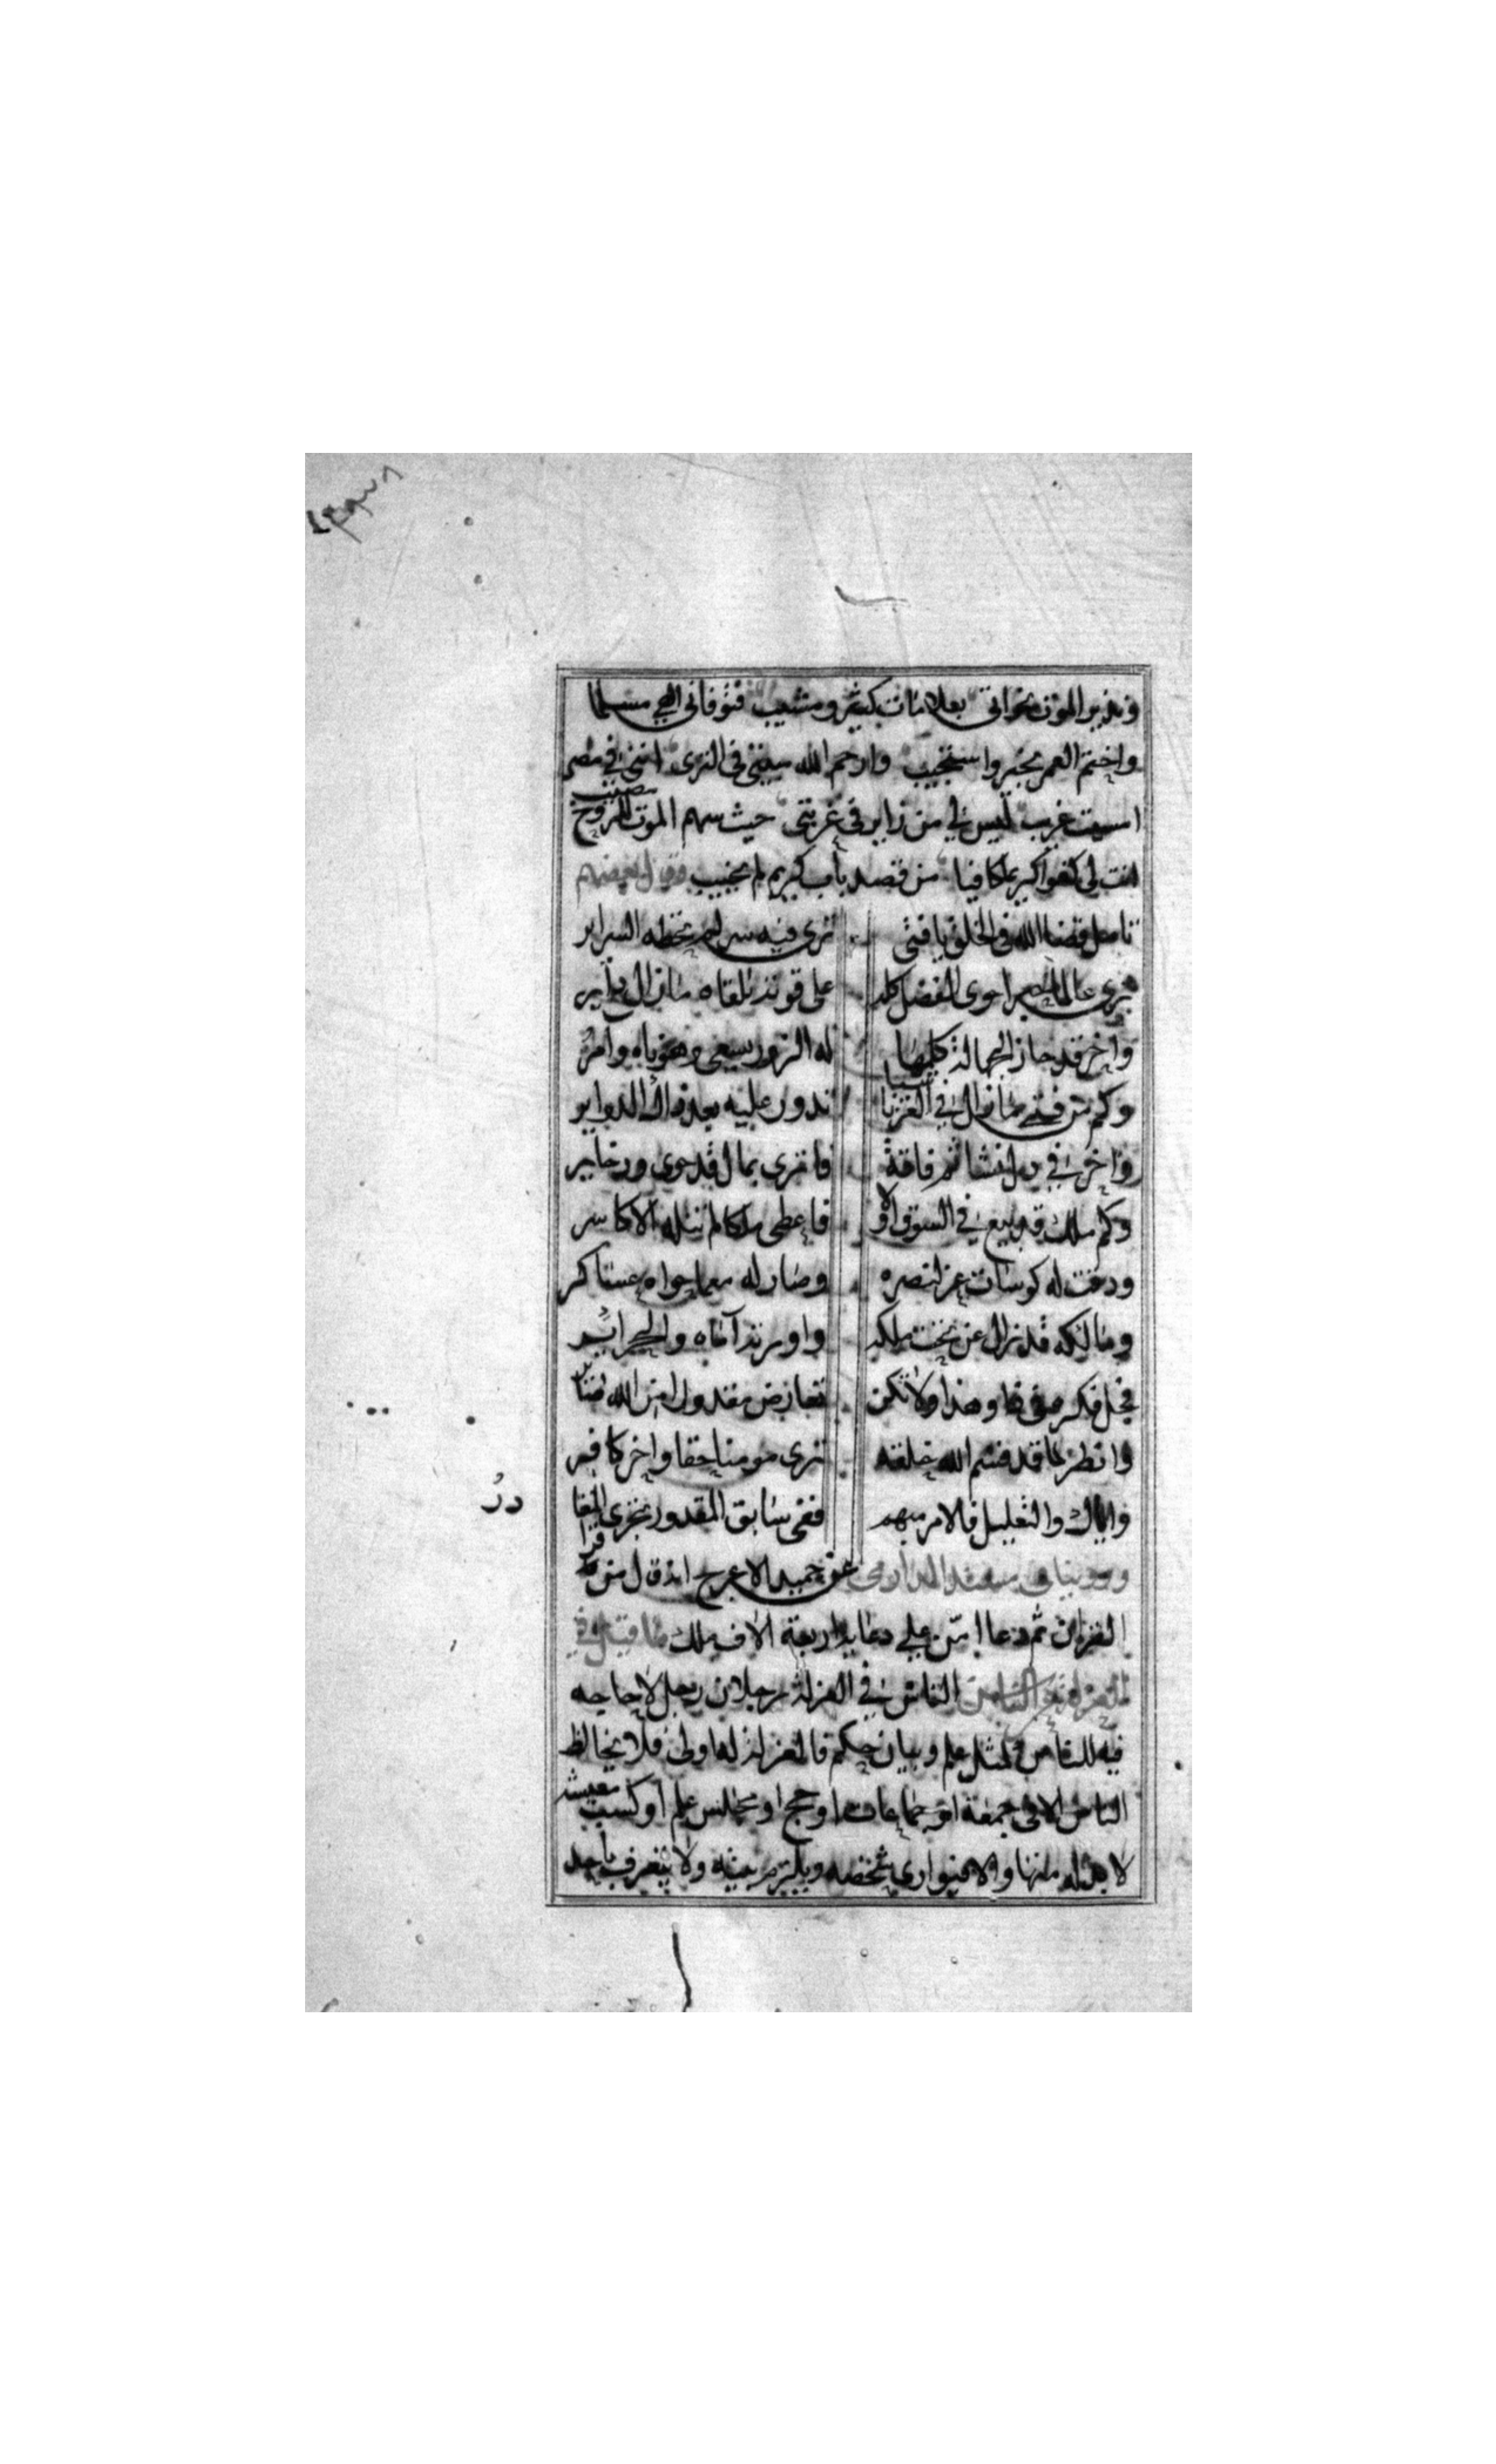 ونذير الموت نحو اتى بعلامات كبيره ومشيب فتوفانى الهى مسلما
واختم العمر بخير واستجيب وارحم الله سينى فى الثرى اننى فى مصر
امسيت غريب ليس لى من زاير فى غربتى حيث سهم الموت للروح مصيب
انت لى كفوا كريما كافيا من قصد باب كريم لم يخيب وقول بعضهم
تامل قضا الله فى الخلق يا فتى ترى فيه سر لم تخطه السراير
ترى عالما للصبر احوى الفضل كله على قوته تلقاه مازال داير
واخر قد حاز الجهالة كلها له الزور يسعى وهو ناه وامر
وكم من فتى مازال فى العز ناشيا تدور عليه بعد ذاك الدواير
واخر فى ذل نشا ثم فاقة فاثرى بمال قد حوى وذخاير
وكم ملك قد بيع فى السوق اولا فاعطى ملكا لم تنله الاكاسر
ودقت له كوسات عز لنصره وصار له مما حواه عساكر
ومالكه قد نزال عن تخت ملكه
فخل فكر فى ذا وهذا ولا تكن تعارض مقدول امن الله
وانظر لما قد قسم الله خلقه ترى مومنا حقا واخر كافر
واياك والتعليل فالامر مبهم ففى سابق المقدور تجرى
وروينا فى مسند الدارمى عن حميد الاعرج انه قال من قرا
القران ثم دعا امن على دعايه اربعة الاف ملك ما قيل فى
العزلة عن الناس الناس فى العزلة رجلان رجل لا حاجه
فيه للناس فى مثل علم وبيان حكم فالعزلة له اولى فلا يخالط
الناس الا فى جمعة او جماعات او حج او مجالس علم او كسب معيشة
لا بد له منها والا فيوارى شخصه ويلتزم بيته ولا يتعرف باحد
در